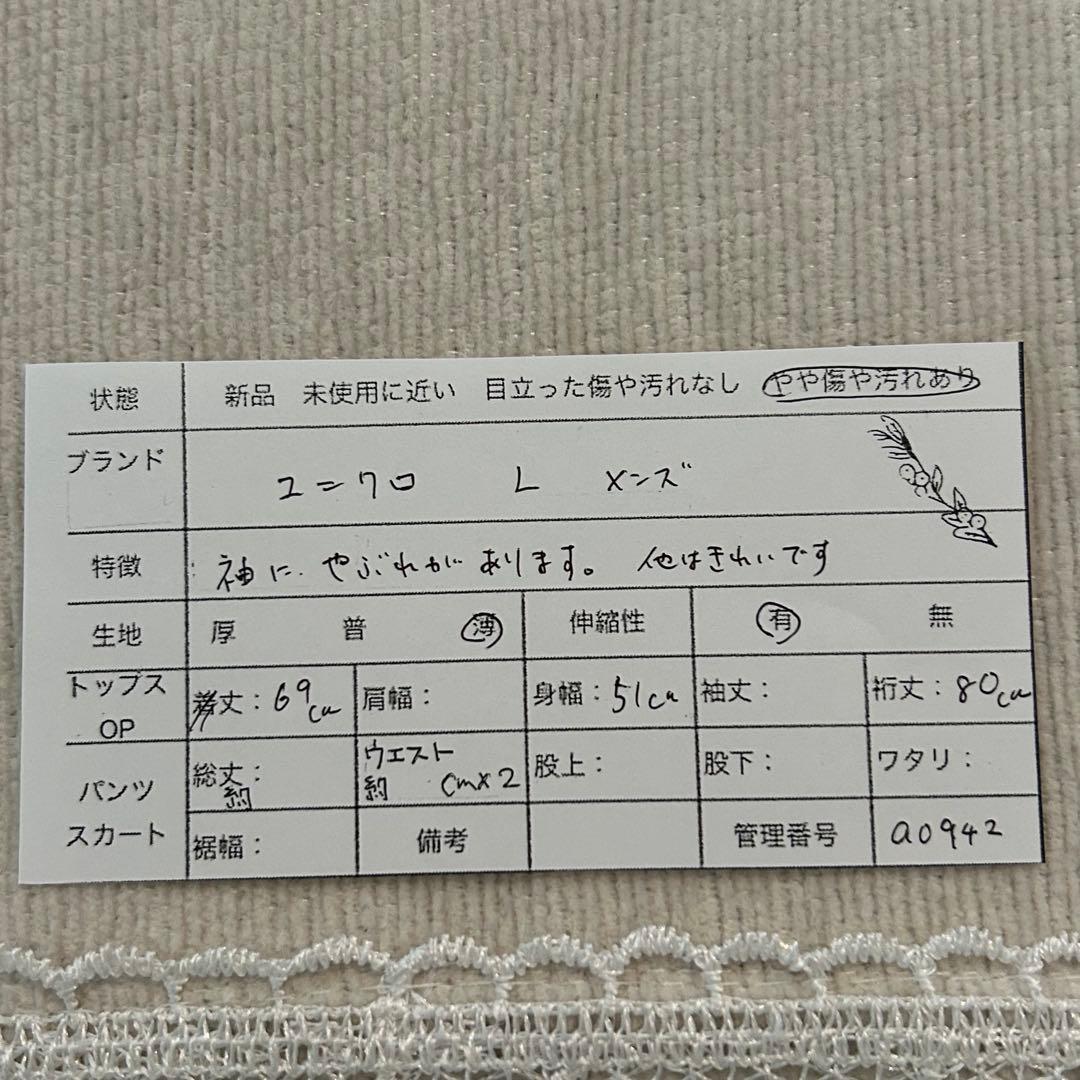 状態 新品 未使用に近い 目立った傷や汚れなし やや傷や汚れあり
ブランド ユニクロ L メンズ
特徴 袖に、やぶれがあります。 他はきれいです
生地 厚 普 薄 伸縮性 有 無
トップス OP 丈：69cm 肩幅： 身幅：51cm 袖丈： 裄丈：80cm
パンツ スカート 総丈：約 ウエスト 約 cm×2 股上： 股下： ワタリ：
裾幅： 備考 管理番号 a0942